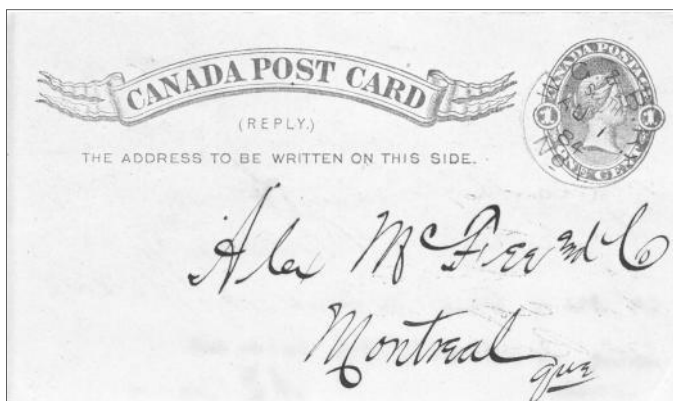 CANADA POST CARD
(REPLY.)
THE ADDRESS TO BE WRITTEN ON THIS SIDE.
CANADA POSTAGE
1 1
Alex McFee and Co
Montreal
que